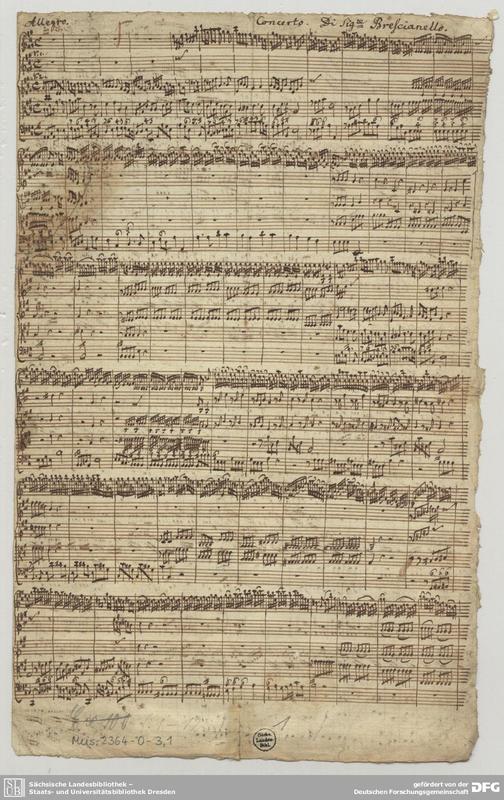 Allegro.
Concerto. Di Sig.re Brescianello.
Mus. 2364-O-3,1
Sächs.
Landes-
Bibl.
SLUB
Sächsische Landesbibliothek –
Staats- und Universitätsbibliothek Dresden
gefördert von der
Deutschen Forschungsgemeinschaft
DFG